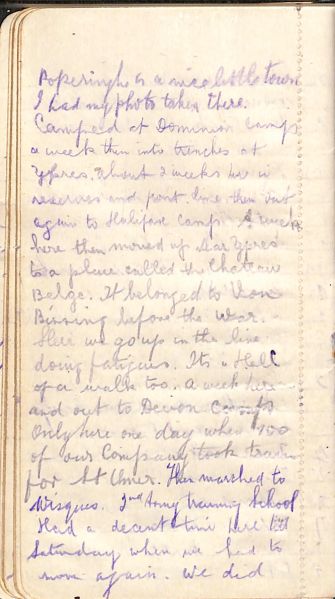 Poperinghe is a nice little town
I had my photo taken there.
Camped at Dominion Camps
a week then into trenches at
Ypres. About 2 weeks here in
reserves and front line then out
again to Halifax Camp. A week
here then moved up near Ypres
to a place called the Chateau
Belge. It belonged to Von
Bissing before the war.
Here we go up in the line
doing fatigues. Its a Hell
of a walk too. A week here
and out to Devon Camps
Only here one day when 100
of our Company took train
for St Omer. Then marched to
Wisques. 2nd Army training School
Had a decent time here till
Saturday when we had to
move again. We did